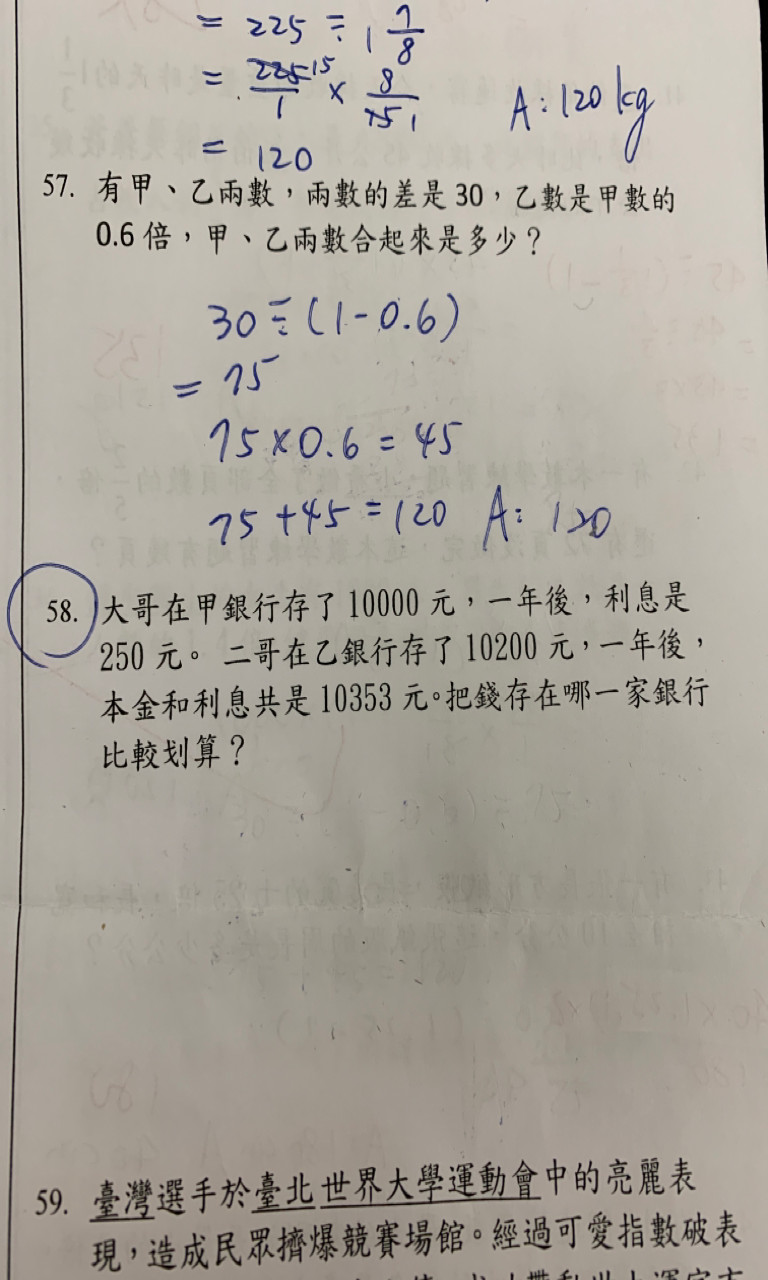 = 225 ÷ 1 7/8
= 225/1 15 × 8/15 1
= 120
A：120 kg
57. 有甲、乙兩數，兩數的差是 30，乙數是甲數的
0.6 倍，甲、乙兩數合起來是多少？
30 ÷ (1 - 0.6)
= 75
75 × 0.6 = 45
75 + 45 = 120 A：120
58. 大哥在甲銀行存了 10000 元，一年後，利息是
250 元。 二哥在乙銀行存了 10200 元，一年後，
本金和利息共是 10353 元。把錢存在哪一家銀行
比較划算？
59. 臺灣選手於臺北世界大學運動會中的亮麗表
現，造成民眾擠爆競賽場館。經過可愛指數破表